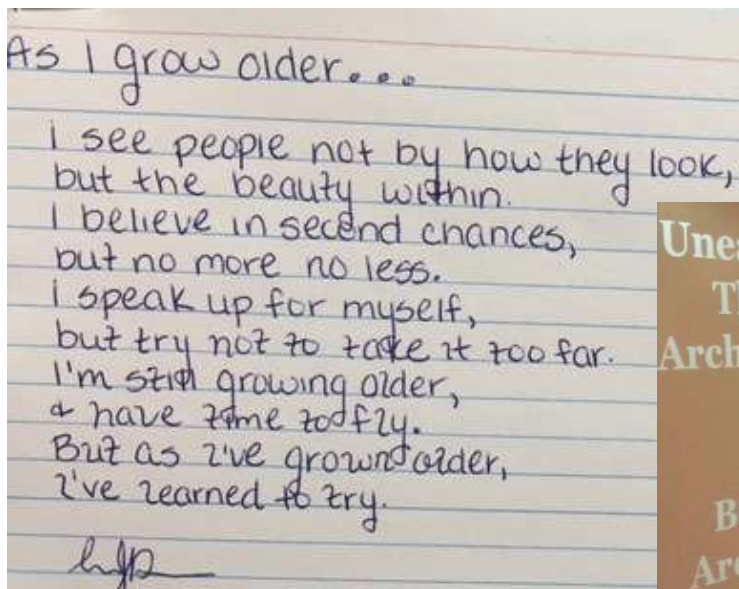 As I grow older...
I see people not by how they look,
but the beauty within.
I believe in second chances,
but no more no less.
I speak up for myself,
but try not to take it too far.
I'm still growing older,
& have time to fly.
But as I've grown older,
I've learned to try.